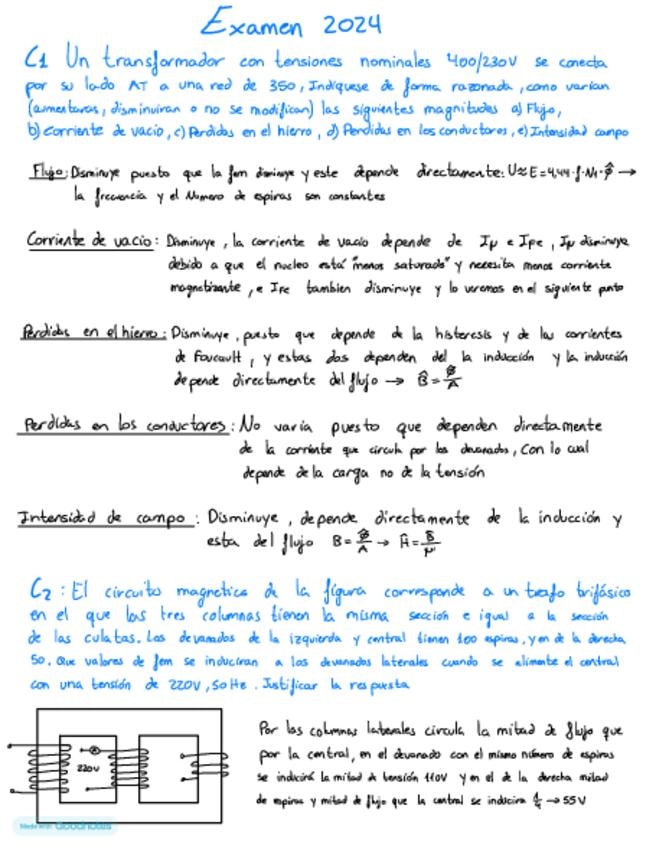 Examen 2024
C1 Un transformador con tensiones nominales 400/230V se conecta
por su lado AT a una red de 350, Indíquese de forma razonada, como varían
(aumentaran, disminuiran o no se modifican) las siguientes magnitudes a) Flujo,
b) corriente de vacio, c) Perdidas en el hierro, d) Perdidas en los conductores, e) Intensidad campo
Flujo: Disminuye puesto que la fem disminuye y este depende directamente: U≈E=4,44·f·N₁·Φ̂ →
la frecuencia y el Numero de espiras son constantes
Corriente de vacio: Disminuye, la corriente de vacio depende de Iμ e IFe, Iμ disminuye
debido a que el nucleo está "menos saturado" y necesita menos corriente
magnetizante, e IFe tambien disminuye y lo veremos en el siguiente punto
Perdidas en el hierro: Disminuye, puesto que depende de la histeresis y de las corrientes
de Foucault, y estas dos dependen del la inducción y la inducción
depende directamente del flujo → B̂=Φ̂/A
Perdidas en los conductores: No varia puesto que dependen directamente
de la corriente que circula por los devanados, con lo cual
depende de la carga no de la tensión
Intensidad de campo: Disminuye, depende directamente de la inducción y
esta del flujo B=Φ̂/A → Ĥ=B̂/μ
C2: El circuito magnetico de la figura corresponde a un trafo trifásico
en el que las tres columnas tienen la misma sección e igual a la sección
de las culatas. Los devanados de la izquierda y central tienen 100 espiras, y en de la derecha
50. Que valores de fem se induciran a los devanados laterales cuando se alimente el central
con una tensión de 220V, 50He. Justificar la respuesta
Por las columnas laterales circula la mitad de flujo que
por la central, en el devanado con el mismo número de espiras
se inducirá la mitad de tensión 110V y en el de la derecha mitad
de espiras y mitad de flujo que la central se inducira 1/4 → 55V
220V
Made with Goodnotes